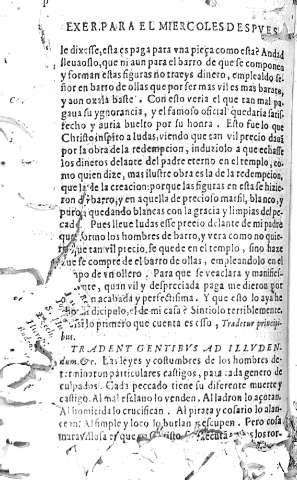 EXER. PARA EL MIERCOLES DESPVES
le dixesse, esta es paga para vna pieça como esta? Andad
lleuaoslo, que ni aun para el barro de que se componen
y forman estas figuras no traeys dinero, empleadlo se
ñor en barro de ollas que por ser mas vil es mas barato,
y aun oxala baste. Con esto veria el que tan mal pa-
gaua su ygnorancia, y el famoso oficial quedaria satis
fecho y auria buelto por su honra. Esto fue lo que
Christo inspiro a Iudas, viendo que tan vil precio daua
por la obra de la redempcion, induziolo a que echasse
los dineros delante del padre eterno en el templo, co-
mo quien dize, mas ilustre obra es la de la redempcion,
que la de la creacion: porque las figuras en esta se hizie
ron de barro, y en aquella de precioso marfil, blanco, y
puro, quedando blancas con la gracia y limpias del pe-
cado. Pues lleue Iudas esse precio delante de mi padre
que formo los hombres de barro, y vera como no quie
re que tan vil precio, se quede en el templo, sino haze
que se compre de el barro de ollas, empleandolo en el
campo de vn ollero. Para que se vea clara y manifies-
mente, quan vil y despreciada paga me dieron por
tan acabada y perfectissima. Y que esto lo aya he
cho mi dicipulo, el de mi casa? Sintiolo terriblemente.
lo primero que cuenta es esso, Tradetur principi-
bus.
TRADENT GENTIBVS AD ILLVDEN-
dum, &c. Las leyes y costumbres de los hombres de-
terminaron particulares castigos, para cada genero de
culpados. Cada peccado tiene su diferente muerte y
castigo. Al mal esclauo lo venden. Al ladron lo açotan.
Al homicida lo crucifican. Al pirata y cosario lo alan-
cean. Al simple y loco lo burlan y escupen. Pero cosa
marauillosa es que en Christo se executan los tor-